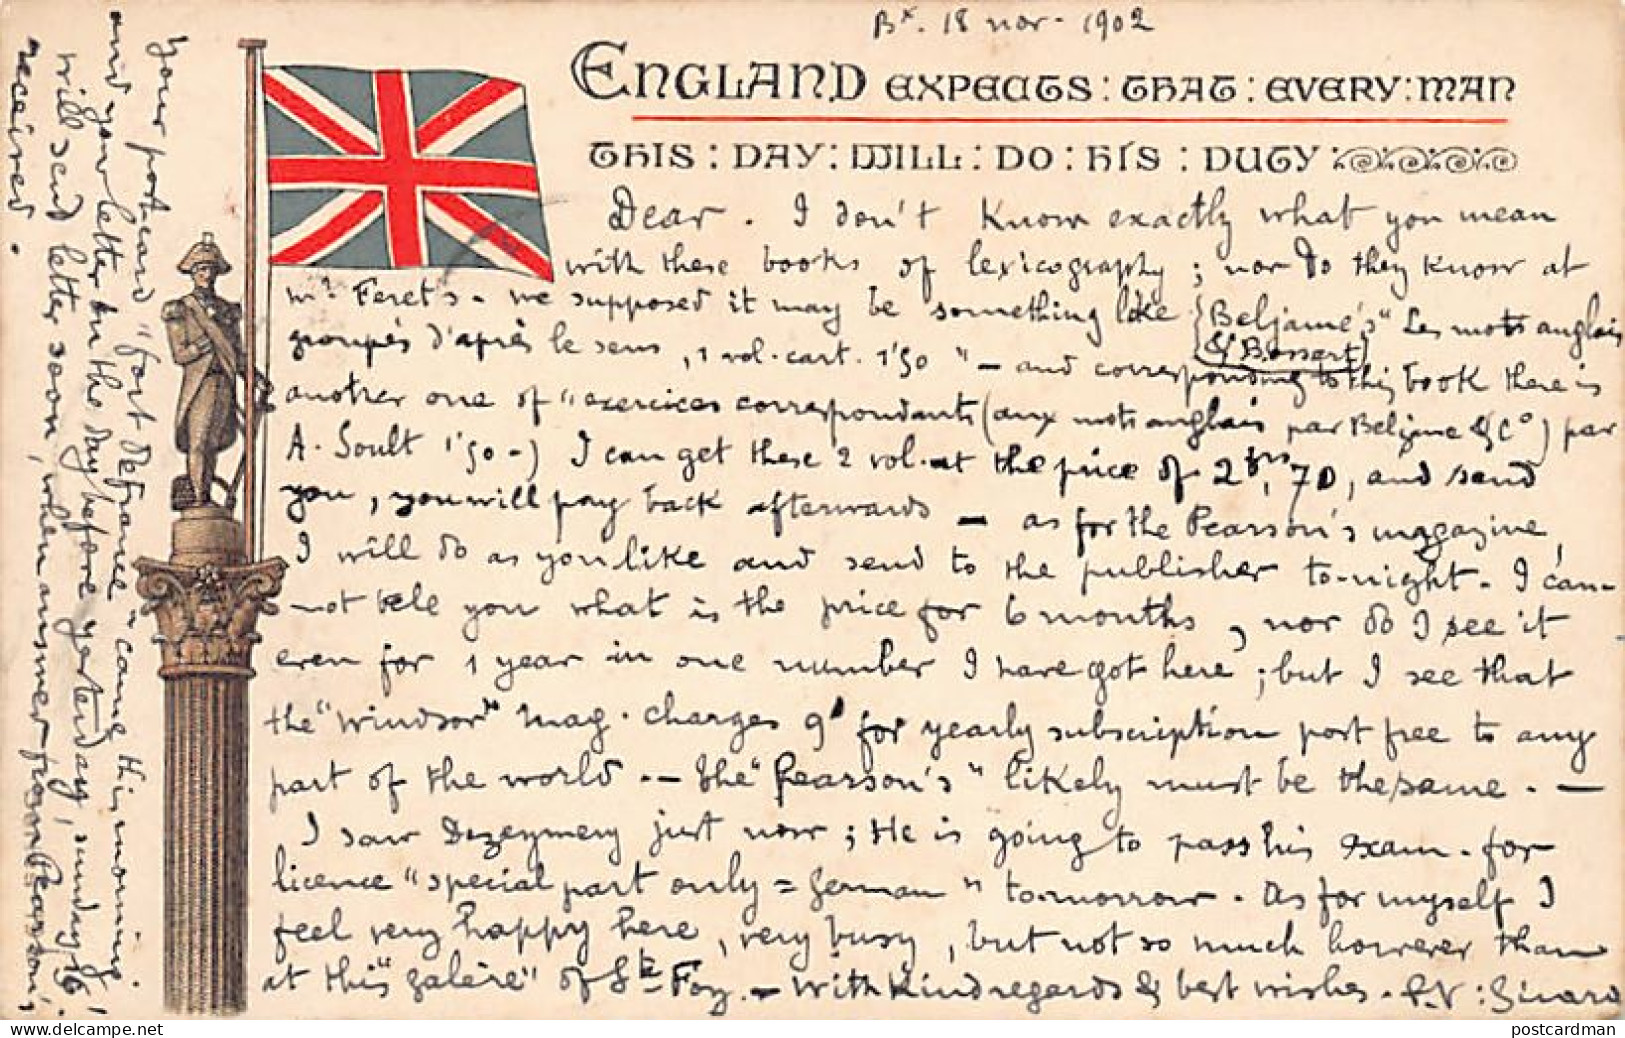 Bx. 18 nov. 1902
ENGLAND EXPECTS : THAT : EVERY : MAN
THIS : DAY : WILL : DO : HIS : DUTY :
Dear . I don't know exactly what you mean
with these books of lexicography ; nor do they know at
Mr Feret's - we supposed it may be something like {Beljame's "Les mots anglais
& Bossert}
groupés d'après le sens, 1 vol. cart. 1'50 " - and corresponding to this book there is
another one of "exercices correspondants (aux mots anglais par Beljame & Co) par
A. Soult 1'50 -) I can get these 2 vol. at the price of 2 frs, 70, and send
you, you will pay back afterwards - as for the Pearson's magazine
I will do as you like and send to the publisher to-night. I can-
not tele you what is the price for 6 months, nor do I see it
even for 1 year in one number I have got here ; but I see that
the "Windsor" Mag. charges 9' for yearly subscription post free to any
part of the world. - the "Pearson's" likely must be the same. -
I saw Dezeymery just now ; He is going to pass his exam. for
licence "special part only = German " to-morrow. As for myself I
feel very happy here, very busy, but not so much however than
at this "galère" of Ste Foy. - With kind regards & best wishes. P.V : Sicard
your postcard "fort de France" came this morning,
and your letter on the day before yesterday, sunday 16.
Will send letter soon, when answer from Pearson's
received.
postcardman